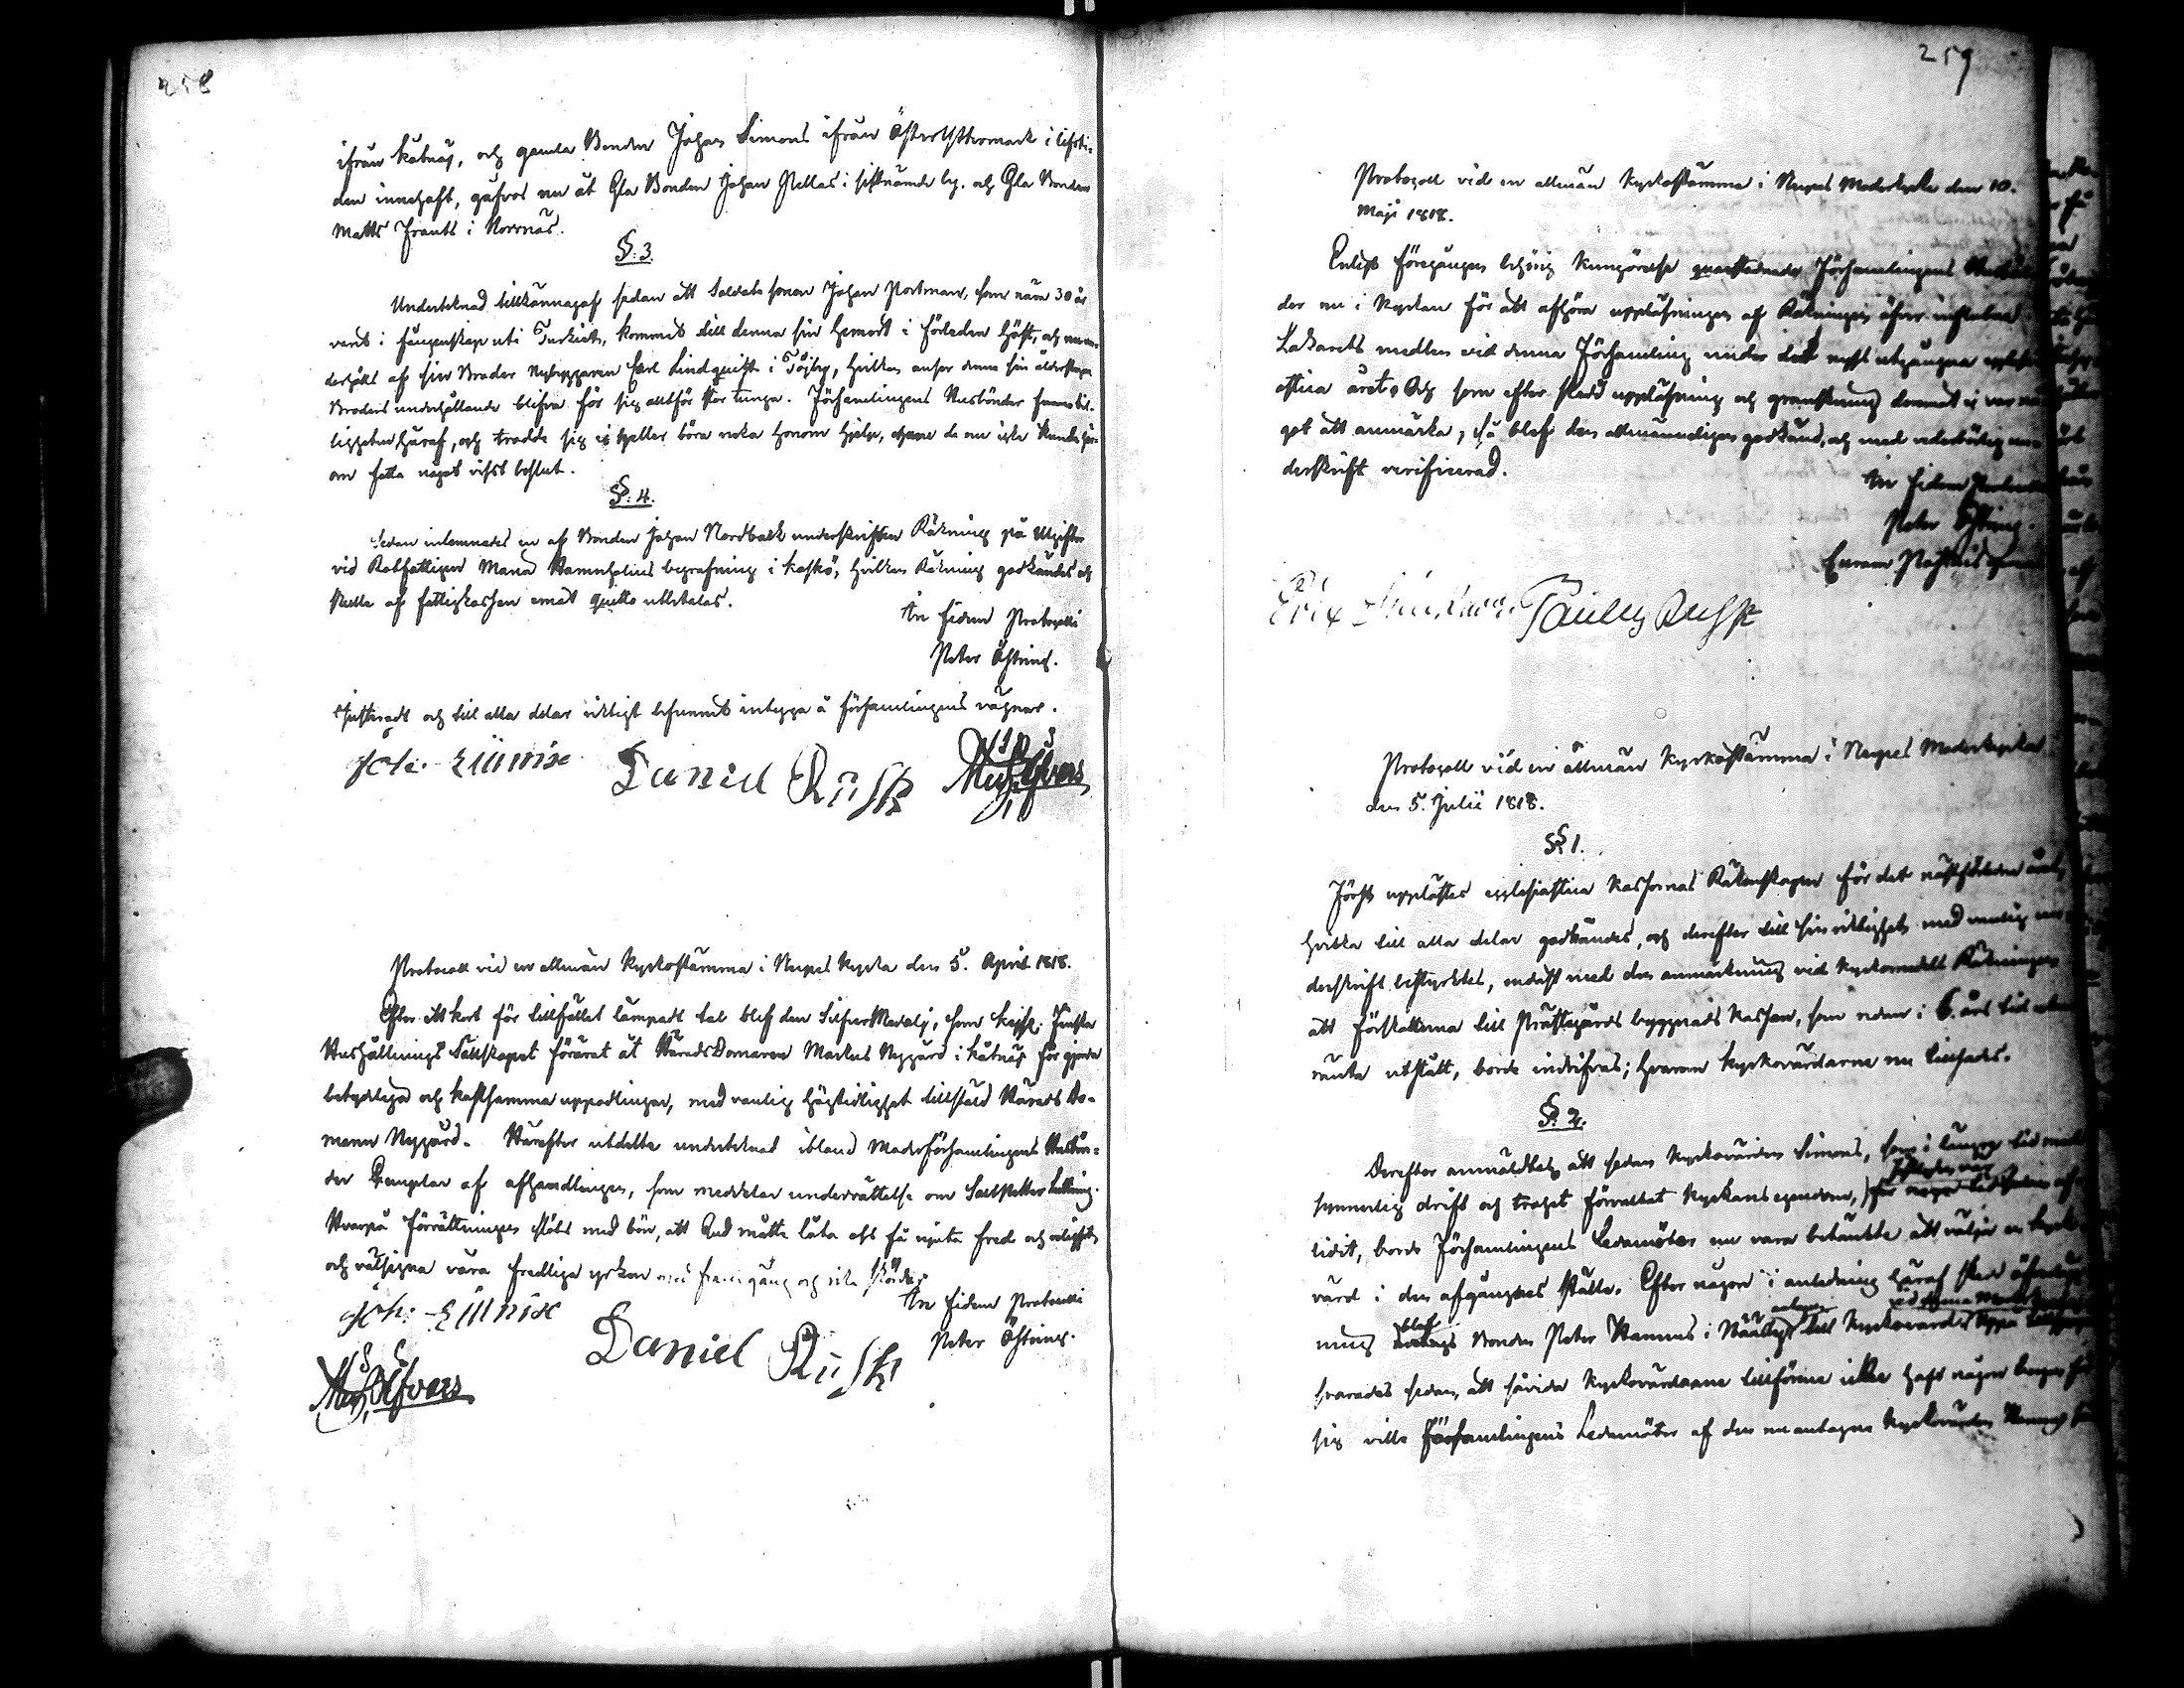 258
ifrån Kåtnäs, och gamla Bonden Johan Simons ifrån Öster Yttermark i lifsti-
den innehaft, gåfvos nu åt Gla Bonden Johan Pellas i sistnämde by, och Gla Bonden
Matts Frants i Norrnäs.
§. 3.
Undertecknad tillkännagaf sedan att Soldats sonen Johan Portman, som nära 30 år
varit i fångenskap uti Turkiet, kommit till denna sin hemort i förleden höst, och
derhållit af sin Broder Nybyggaren Carl Lindqvist i Töjby, hvilken anser denne sin ålderstegne
Broders underhållande blifva för sig alltför stor tunga. Församlingens Husbönder funno bil-
ligheten häraf, och trodde sig ej heller böra neka honom hjelp, ehuru de nu icke kunde här-
om fatta något visst beslut.
§. 4.
Sedan inlemnades en af Bonden Johan Nordback underskrifven Räkning på Utgifter
vid Rotfattigen Maria Hammelins begrafning i Kaskö, hvilken Räkning godkändes och
skulle af fattigkassan emot qvitto utbetalas.
In fidem Protocolli
Peter Östring.
Justeradt och till alla delar riktigt befunnit intyga å församlingens vägnar.
Joh: Ellnäs
Daniel Rusk
Protocoll vid en allmän Kyrkostämma i Nerpes Kyrka den 5. April 1818.
Efter ett kort för tillfället lämpadt tal blef den Silfver Medalj, som Kejsl. Finska
Hushållnings Sällskapet förärat åt HäradsDomaren Markus Nygård i Kåtnäs för gjorda
betydliga och kostsamma uppodlingar, med vanlig högtidlighet tillstäld Härads Do-
maren Nygård. Härefter utdelte undertecknad ibland Moderförsamlingens Husbön-
der Exemplar af afhandlingen, som meddelar underrättelse om
Hvarpå förrättningen slöts med bön, att Gud måtte låta oss få njuta fred och
och välsigna våra fredliga yrken med framgång och rika skördar.
In fidem Protocolli
Peter Östring.
Joh: Ellnäs
Daniel Rusk
259
Protocoll vid en allmän Kyrkostämma i Nerpes Moderkyrka den 10.
Maji 1818.
Enligt föregången behörig kungörelse Församlingens
der nu i Kyrkan för att afhöra uppläsningen af Räkningen öfver influtna
Lazarets medlen vid denna Församling under det nyst utgångna
stica året. Och som efter skedd uppläsning och granskning dervid ej var nå-
got att anmärka, så blef den allmänneligen godkänd, och med vederbörlig un-
derskrift verificerad.
In fidem Protocolli
Peter Östring.
Erix Paulus Rusk
Protocoll vid en allmän Kyrkostämma i Nerpes Moderkyrka
den 5. Julii 1818.
§. 1.
Först upplästes ecclesiastica kassornas Räkenskaper för det nästförledne året,
hvilka till alla delar godkändes, och derefter till sin riktighet med vanlig un-
derskrift bestyrktes, endast med den anmärkning vid Kyrkomedels Räkningen
att förskotterna till Prästegårds byggnads Kassan, som redan i 6. års tid utan
ränta utstått, borde indrifvas; hvarom Kyrkovärdarne nu tillsades.
§. 2.
Derefter anmäldtes att sedan Kyrkovärden Simons, som i längre tid med
synnerlig drift och trohet förvaltat Kyrkans egendom, för någon tid sedan af-
lidit, borde Församlingens Ledamöter nu vara betänkte att välja en Kyrko-
värd i den afgångnes ställe. Efter någon i anledning häraf skedd öfverlägg-
ning blef Bonden Peter Hannus i antagen till Kyrkovärd.
svarades sedan, att såvida Kyrkovärdarne tillförene icke haft någon borgen för
sig ville Församlingens Ledamöter af den nu antagne Kyrkovärden Hannus